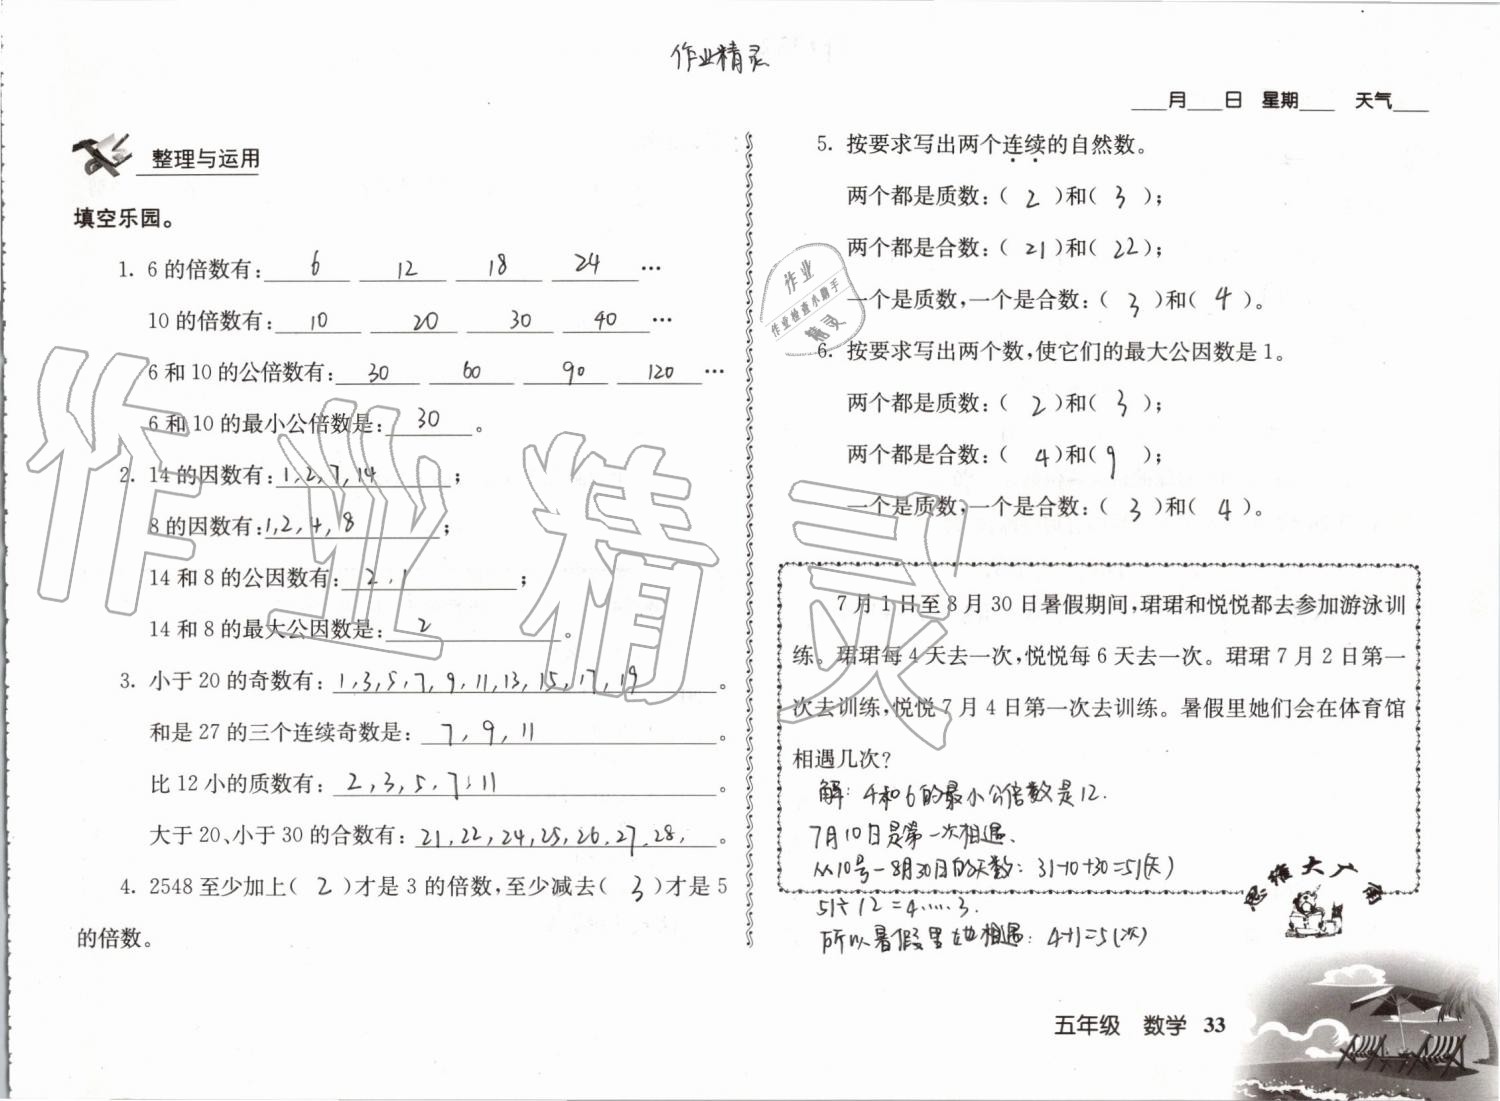 作业精灵
____月____日 星期____ 天气____
整理与运用
填空乐园。
1. 6的倍数有: 6 12 18 24 …
10的倍数有: 10 20 30 40 …
6和10的公倍数有: 30 60 90 120 …
6和10的最小公倍数是: 30 。
2. 14的因数有: 1,2,7,14 ;
8的因数有: 1,2,4,8 ;
14和8的公因数有: 2,1 ;
14和8的最大公因数是: 2 。
3. 小于20的奇数有: 1,3,5,7,9,11,13,15,17,19 。
和是27的三个连续奇数是: 7,9,11 。
比12小的质数有: 2,3,5,7,11 。
大于20、小于30的合数有: 21,22,24,25,26,27,28, 。
4. 2548至少加上( 2 )才是3的倍数,至少减去( 3 )才是5
的倍数。
5. 按要求写出两个连续的自然数。
两个都是质数:( 2 )和( 3 );
两个都是合数:( 21 )和( 22 );
一个是质数,一个是合数:( 3 )和( 4 )。
6. 按要求写出两个数,使它们的最大公因数是1。
两个都是质数:( 2 )和( 3 );
两个都是合数:( 4 )和( 9 );
一个是质数,一个是合数:( 3 )和( 4 )。
7月1日至8月30日暑假期间,珺珺和悦悦都去参加游泳训
练。珺珺每4天去一次,悦悦每6天去一次。珺珺7月2日第一
次去训练,悦悦7月4日第一次去训练。暑假里她们会在体育馆
相遇几次?
解:4和6的最小公倍数是12.
7月10日是第一次相遇.
从10号-8月30日的天数:31-10+30=51(天)
51÷12=4……3.
所以暑假里她相遇:4+1=5(次)
思维大广场
五年级 数学 33
作业
作业检查小助手
精灵
作业精灵